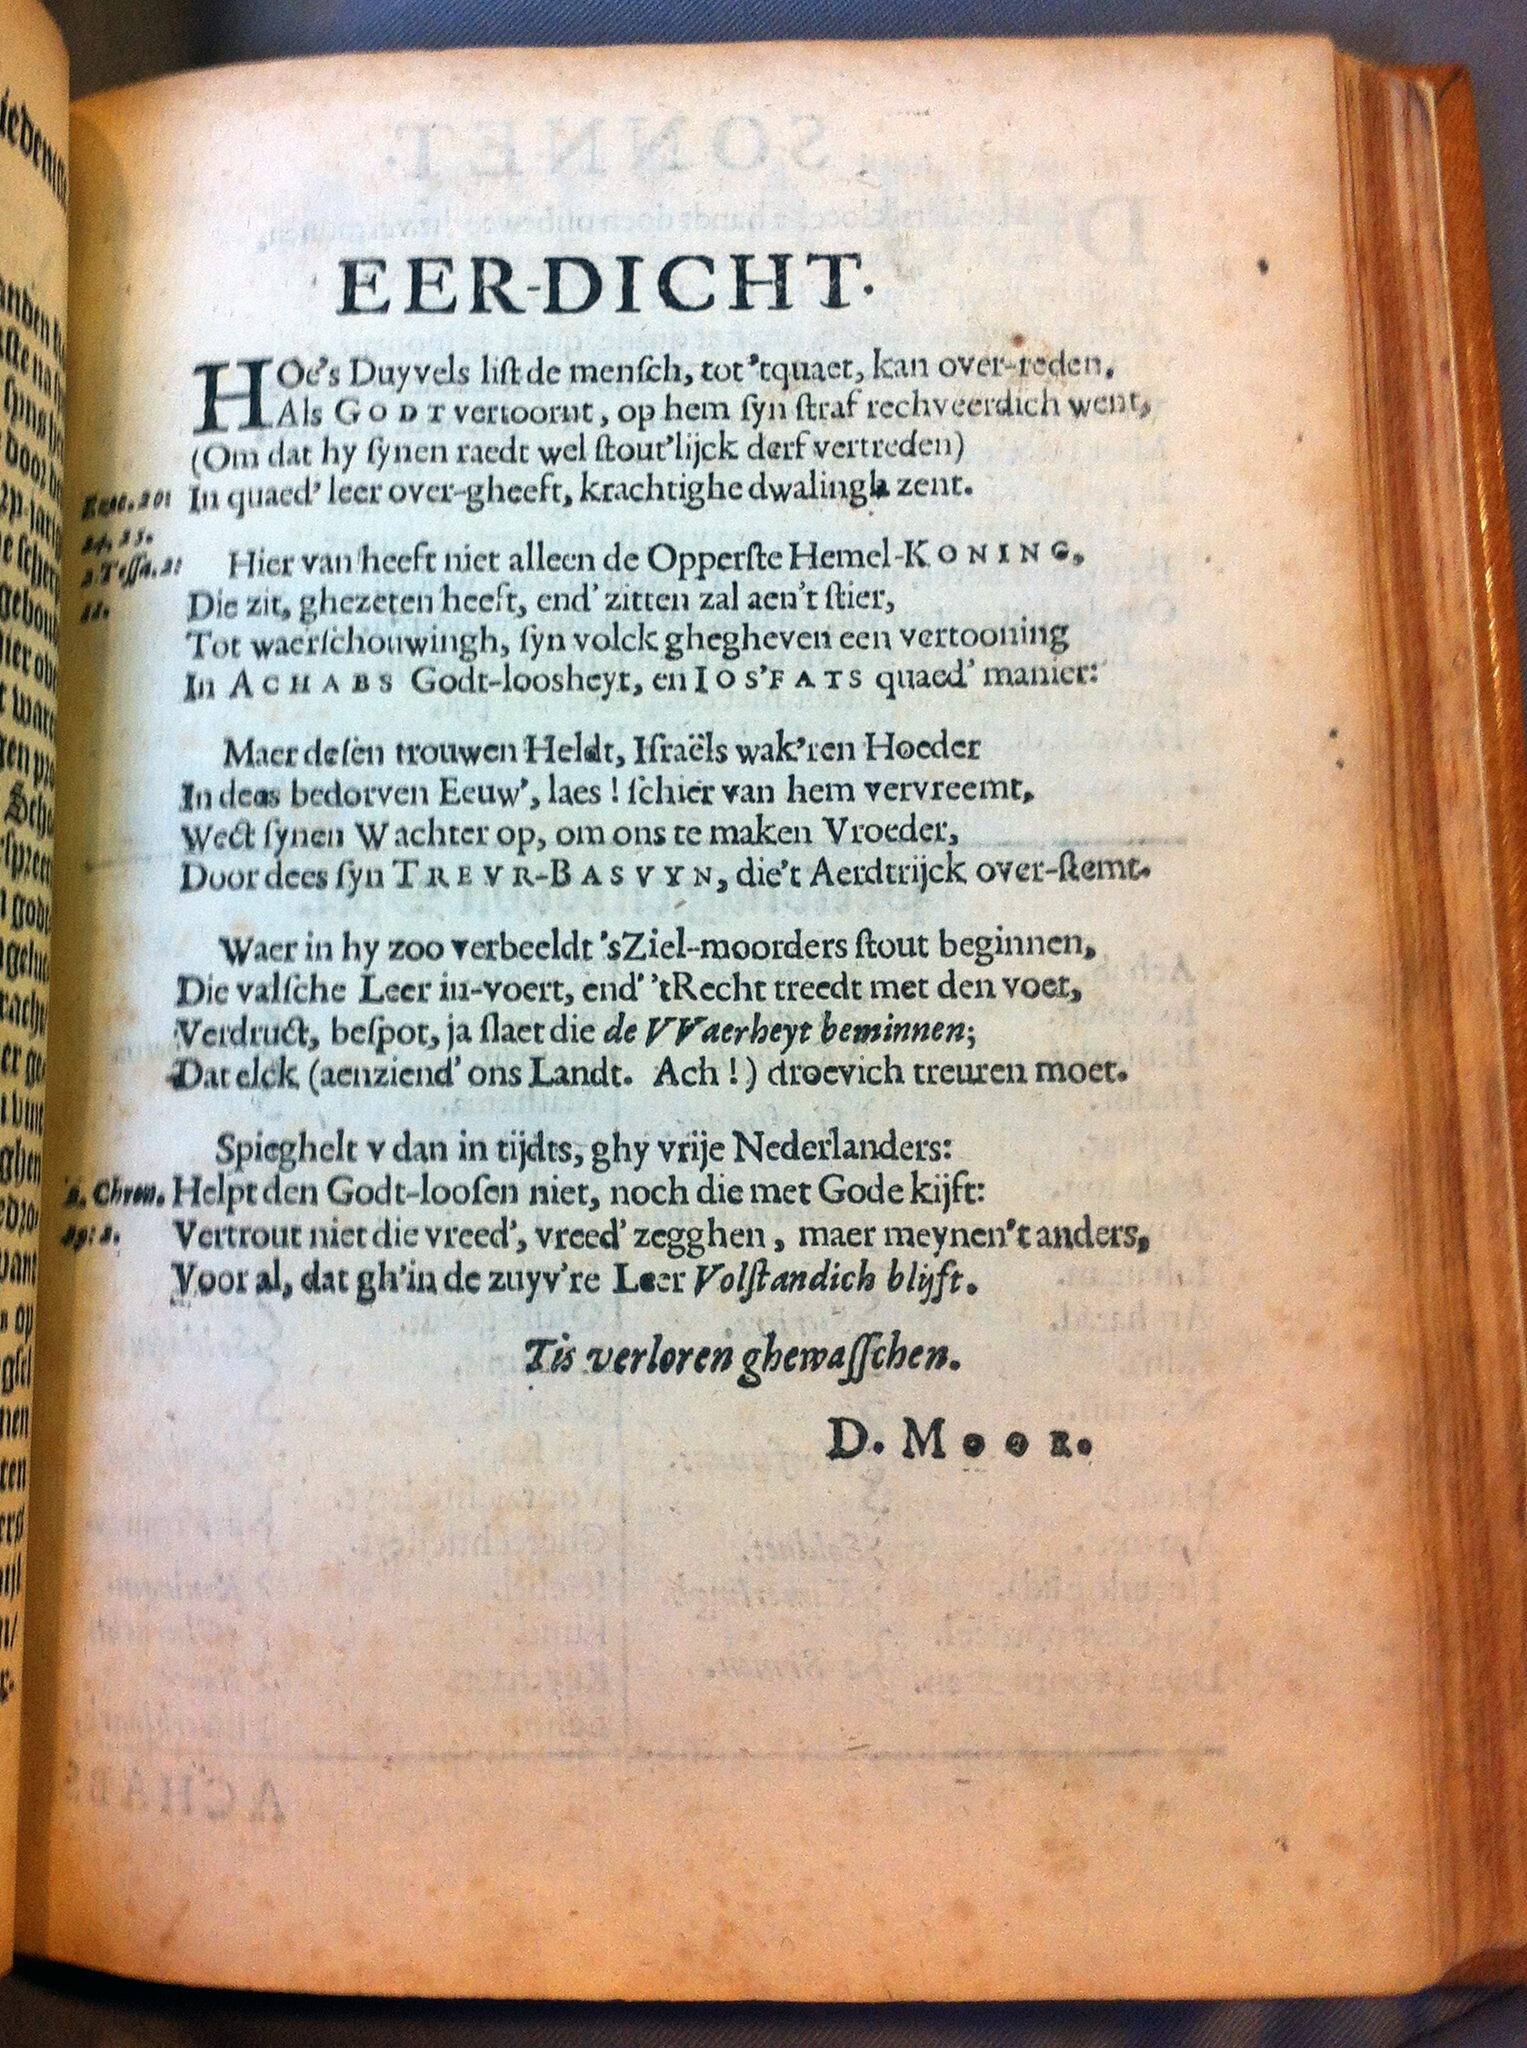 EER-DICHT.
HOe's Duyvels liſt de menſch, tot 'tquaet, kan over-reden.
Als GODT vertoornt, op hem ſyn ſtraf rechveerdich went,
(Om dat hy ſynen raedt wel ſtout'lijck derf vertreden)
In quaed' leer over-gheeft, krachtighe dwalingh zent.
Hier van heeft niet alleen de Opperſte Hemel-KONING,
Die zit, ghezeten heeft, end' zitten zal aen't ſtier,
Tot waerſchouwingh, ſyn volck ghegheven een vertooning
In ACHABS Godt-loosheyt, en IOS'FATS quaed' manier:
Maer deſen trouwen Heldt, Iſraëls wak'ren Hoeder
In dees bedorven Eeuw', laes! ſchier van hem vervreemt,
Weckt ſynen Wachter op, om ons te maken Vroeder,
Door dees ſyn TREVR-BASVYN, die't Aerdtrijck over-ſtemt.
Waer in hy zoo verbeeldt 'sZiel-moorders ſtout beginnen,
Die valſche Leer in-voert, end' 'tRecht treedt met den voet,
Verdruct, beſpot, ja ſlaet die de VVaerheyt beminnen;
Dat elck (aenziend' ons Landt. Ach!) droevich treuren moet.
Spieghelt v dan in tijdts, ghy vrije Nederlanders:
2. Chron. Helpt den Godt-looſen niet, noch die met Gode kijft:
19: 2. Vertrout niet die vreed', vreed' zegghen, maer meynen't anders,
Voor al, dat gh'in de zuyv're Leer Volſtandich blijft.
Tis verloren ghewaſſchen.
D. MOOR.